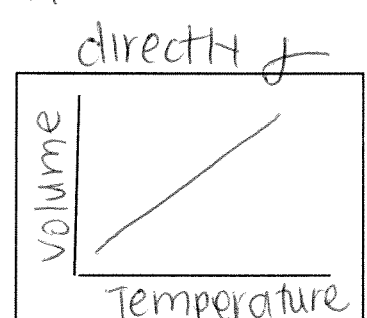 directly
volume
Temperature